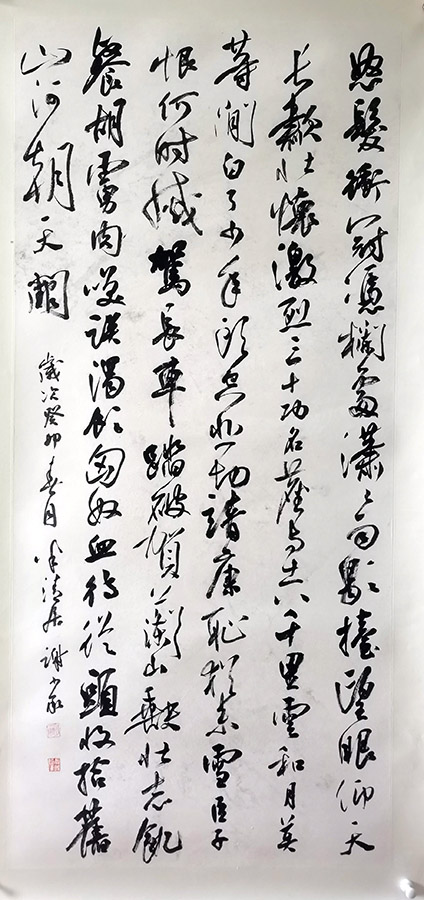 怒髮衝冠憑欄處瀟〻雨歇擡望眼仰天
長嘯壯懷激烈三十功名塵与土八千里雲和月莫
等閒白了少年頭空悲切靖康恥猶未雪臣子
恨何时滅駕長車踏破賀蘭山缺壯志飢
餐胡虜肉笑談渴飲匈奴血待從頭收拾舊
山河朝天闕
歲次癸卯春月 清居 謝